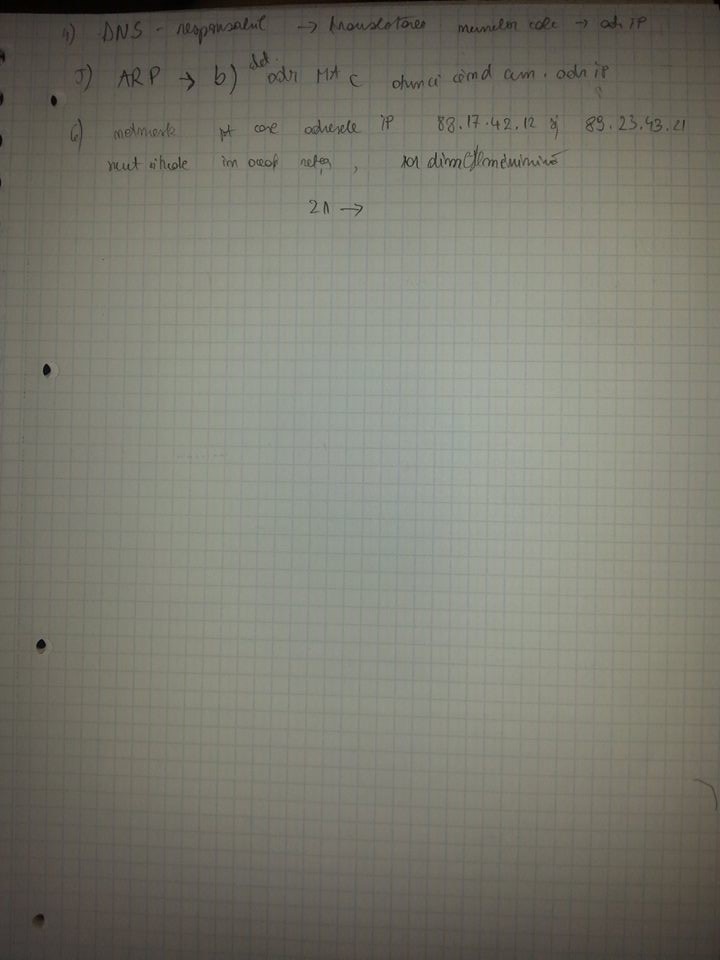 4) DNS - responsabil → translatarea numelor calc → adr IP
5) ARP → b) det. adr MAC atunci când cun. adr ip
6) netmask pt care adresele IP 88.17.42.12 și 89.23.43.21
sunt situate în aceași rețea, iar dim minimă
21 →